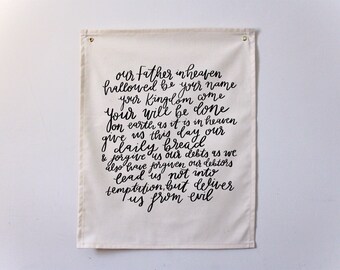 our Father in heaven
hallowed be your name
your Kingdom come
your will be done
on earth as it is in heaven
give us this day our
daily bread
& forgive us our debts as we
also have forgiven our debtors
lead us not into
temptation, but deliver
us from evil